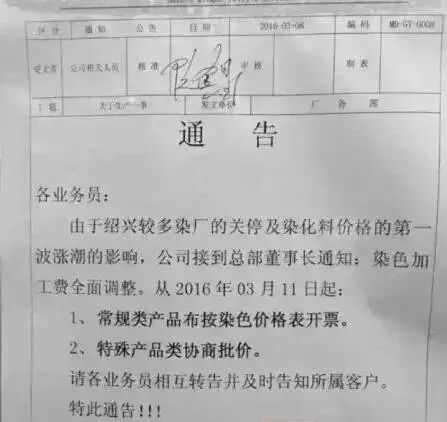 通知 公告 日期 2016-03-08 编码 MD-GT-6008
受文者 公司相关人员 核准 审核 制表
主题 关于生产一事 发文单位 厂务部
通 告
各业务员：
由于绍兴较多染厂的关停及染化料价格的第一
波涨潮的影响，公司接到总部董事长通知：染色加
工费全面调整。从 2016 年 03 月 11 日起：
1、常规类产品布按染色价格表开票。
2、特殊产品类协商批价。
请各业务员相互转告并及时告知所属客户。
特此通告!!!